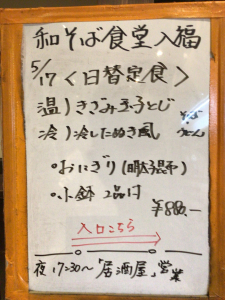 和そば食堂入福
5/17 <日替定食>
温) きざみ玉子とじ
冷) 冷したぬき風
そば
うどん
・おにぎり
・小鉢 2品付
¥880.—
入口こちら
夜 17:30〜「居酒屋」営業